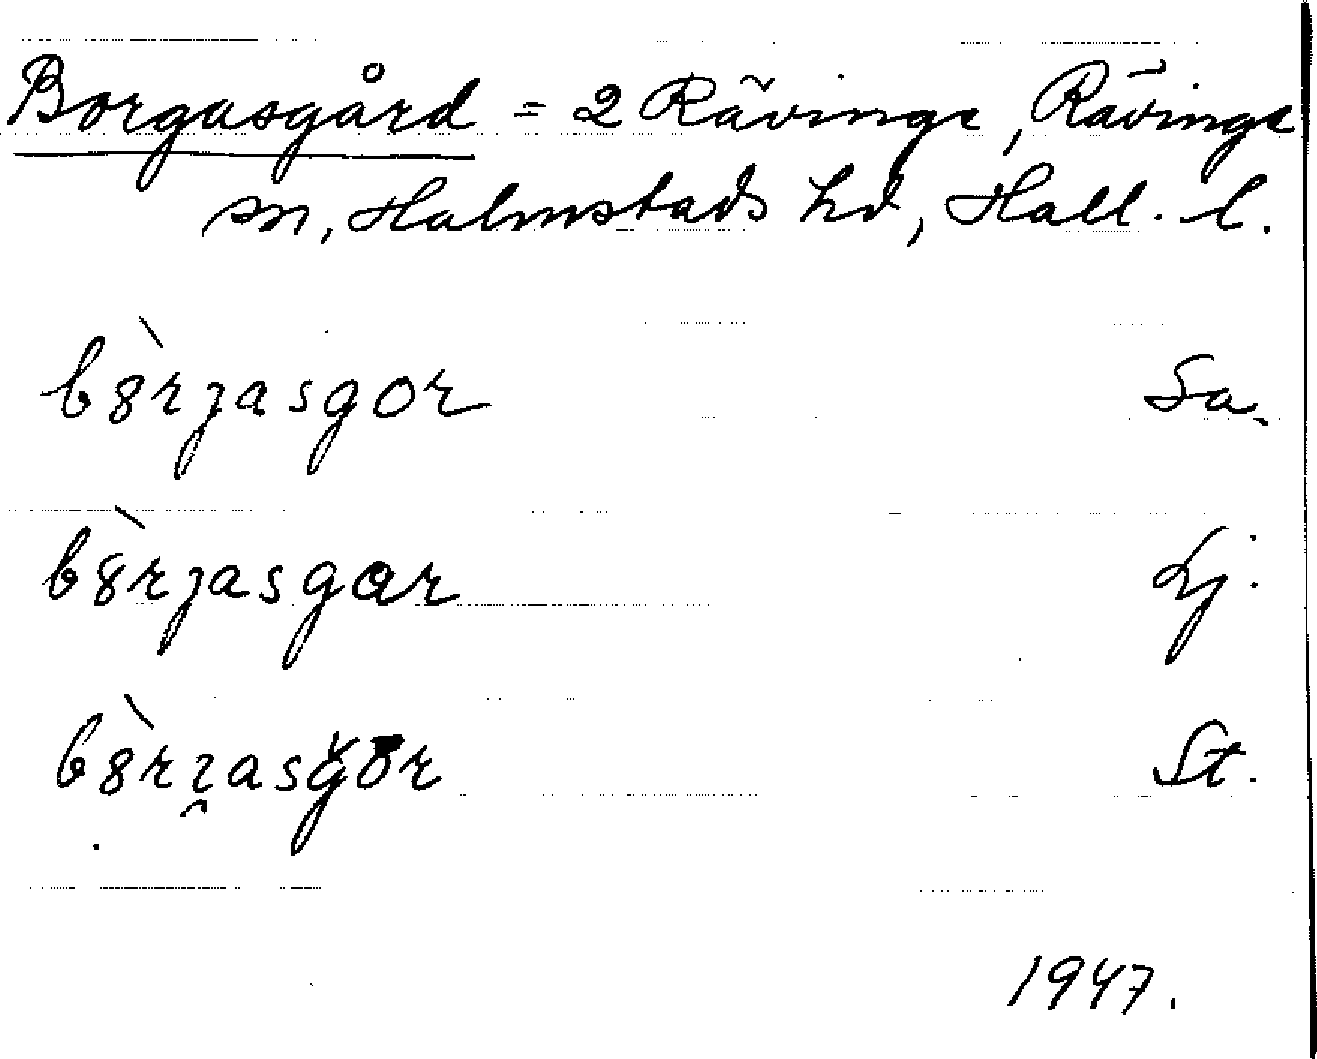 Borgasgård = 2 Rävinge, Rävinge
sn, Halmstads hd, Hall. l.
b8̀rjasgor Sa.
b8̀rjasgar Lj.
St.
1947.